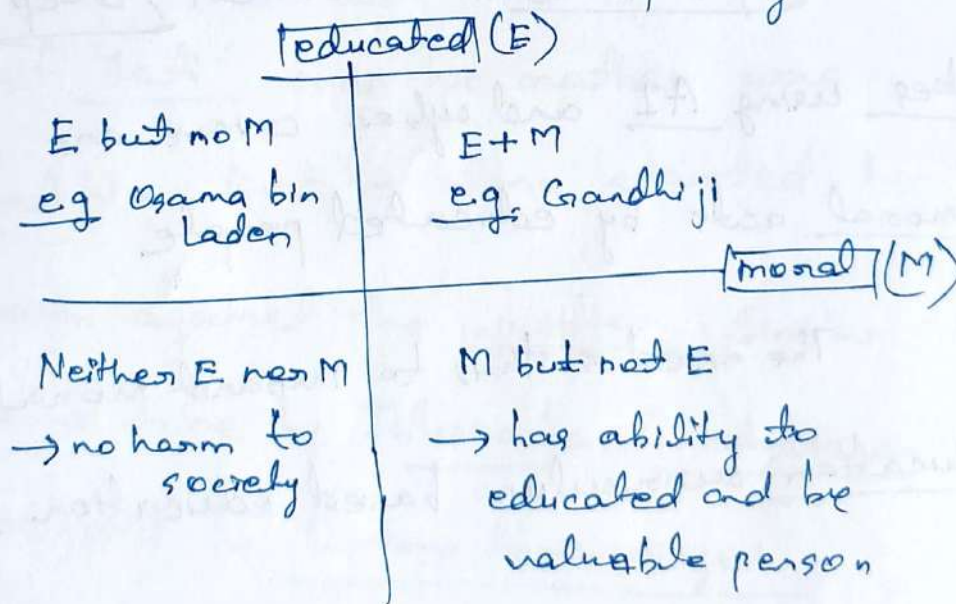 educated (E)
E but no M
e.g Osama bin
Laden
E + M
e.g. Gandhiji
moral (M)
Neither E nor M
→ no harm to
society
M but not E
→ has ability to
educated and be
valuable person